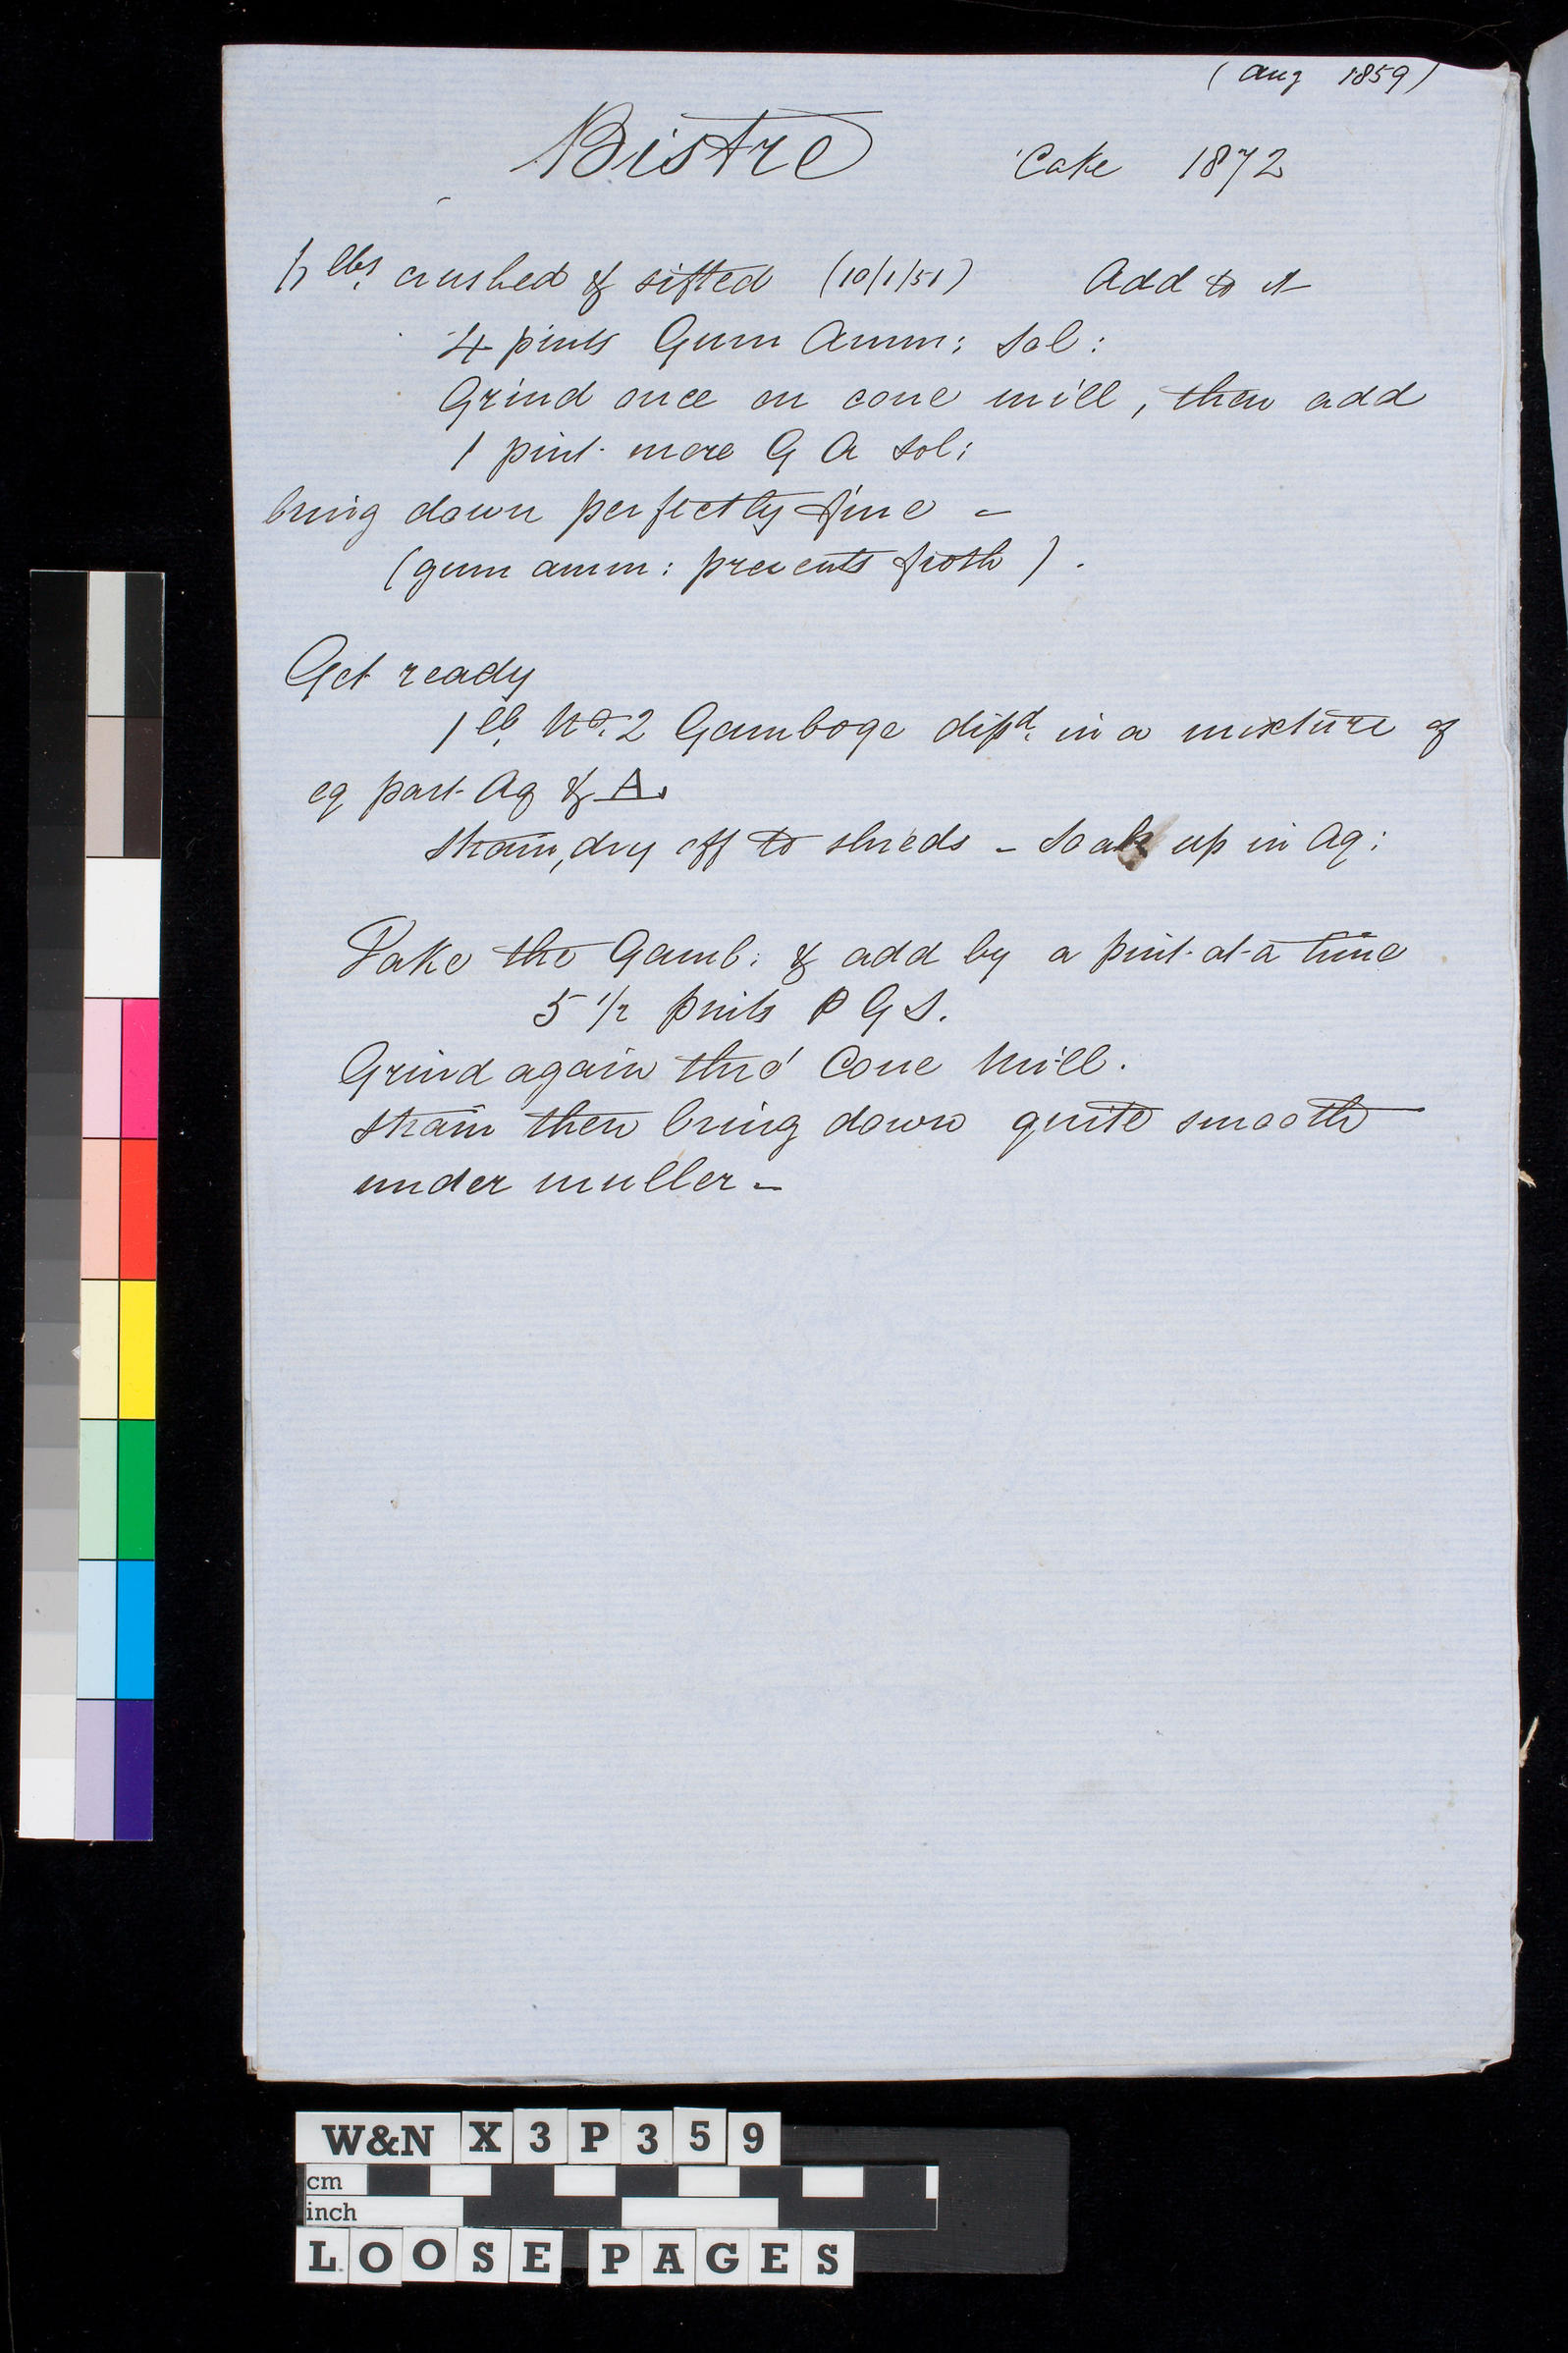 ( Aug 1859 )
Bistre Cake 1872
lbs. crushed & sifted (10/1/51) Add to it
4 pints Gum Amm: Sol:
Grind once on cone mill, then add
1 pint more G A Sol:
bring down perfectly fine –
(gum amm: prevents froth ) .
Get ready
1 lb. No. 2 Gamboge dissd. in a mixture of
eq part Aq & A.
Strain, dry off to shreds – Soak up in Aq:
Take the Gamb: & add by a pint at a time
5 1/2 pints P G S.
Grind again thro' Cone Mill.
Strain then bring down quite smooth
under muller –
W&N X3P359
cm
inch
LOOSE PAGES